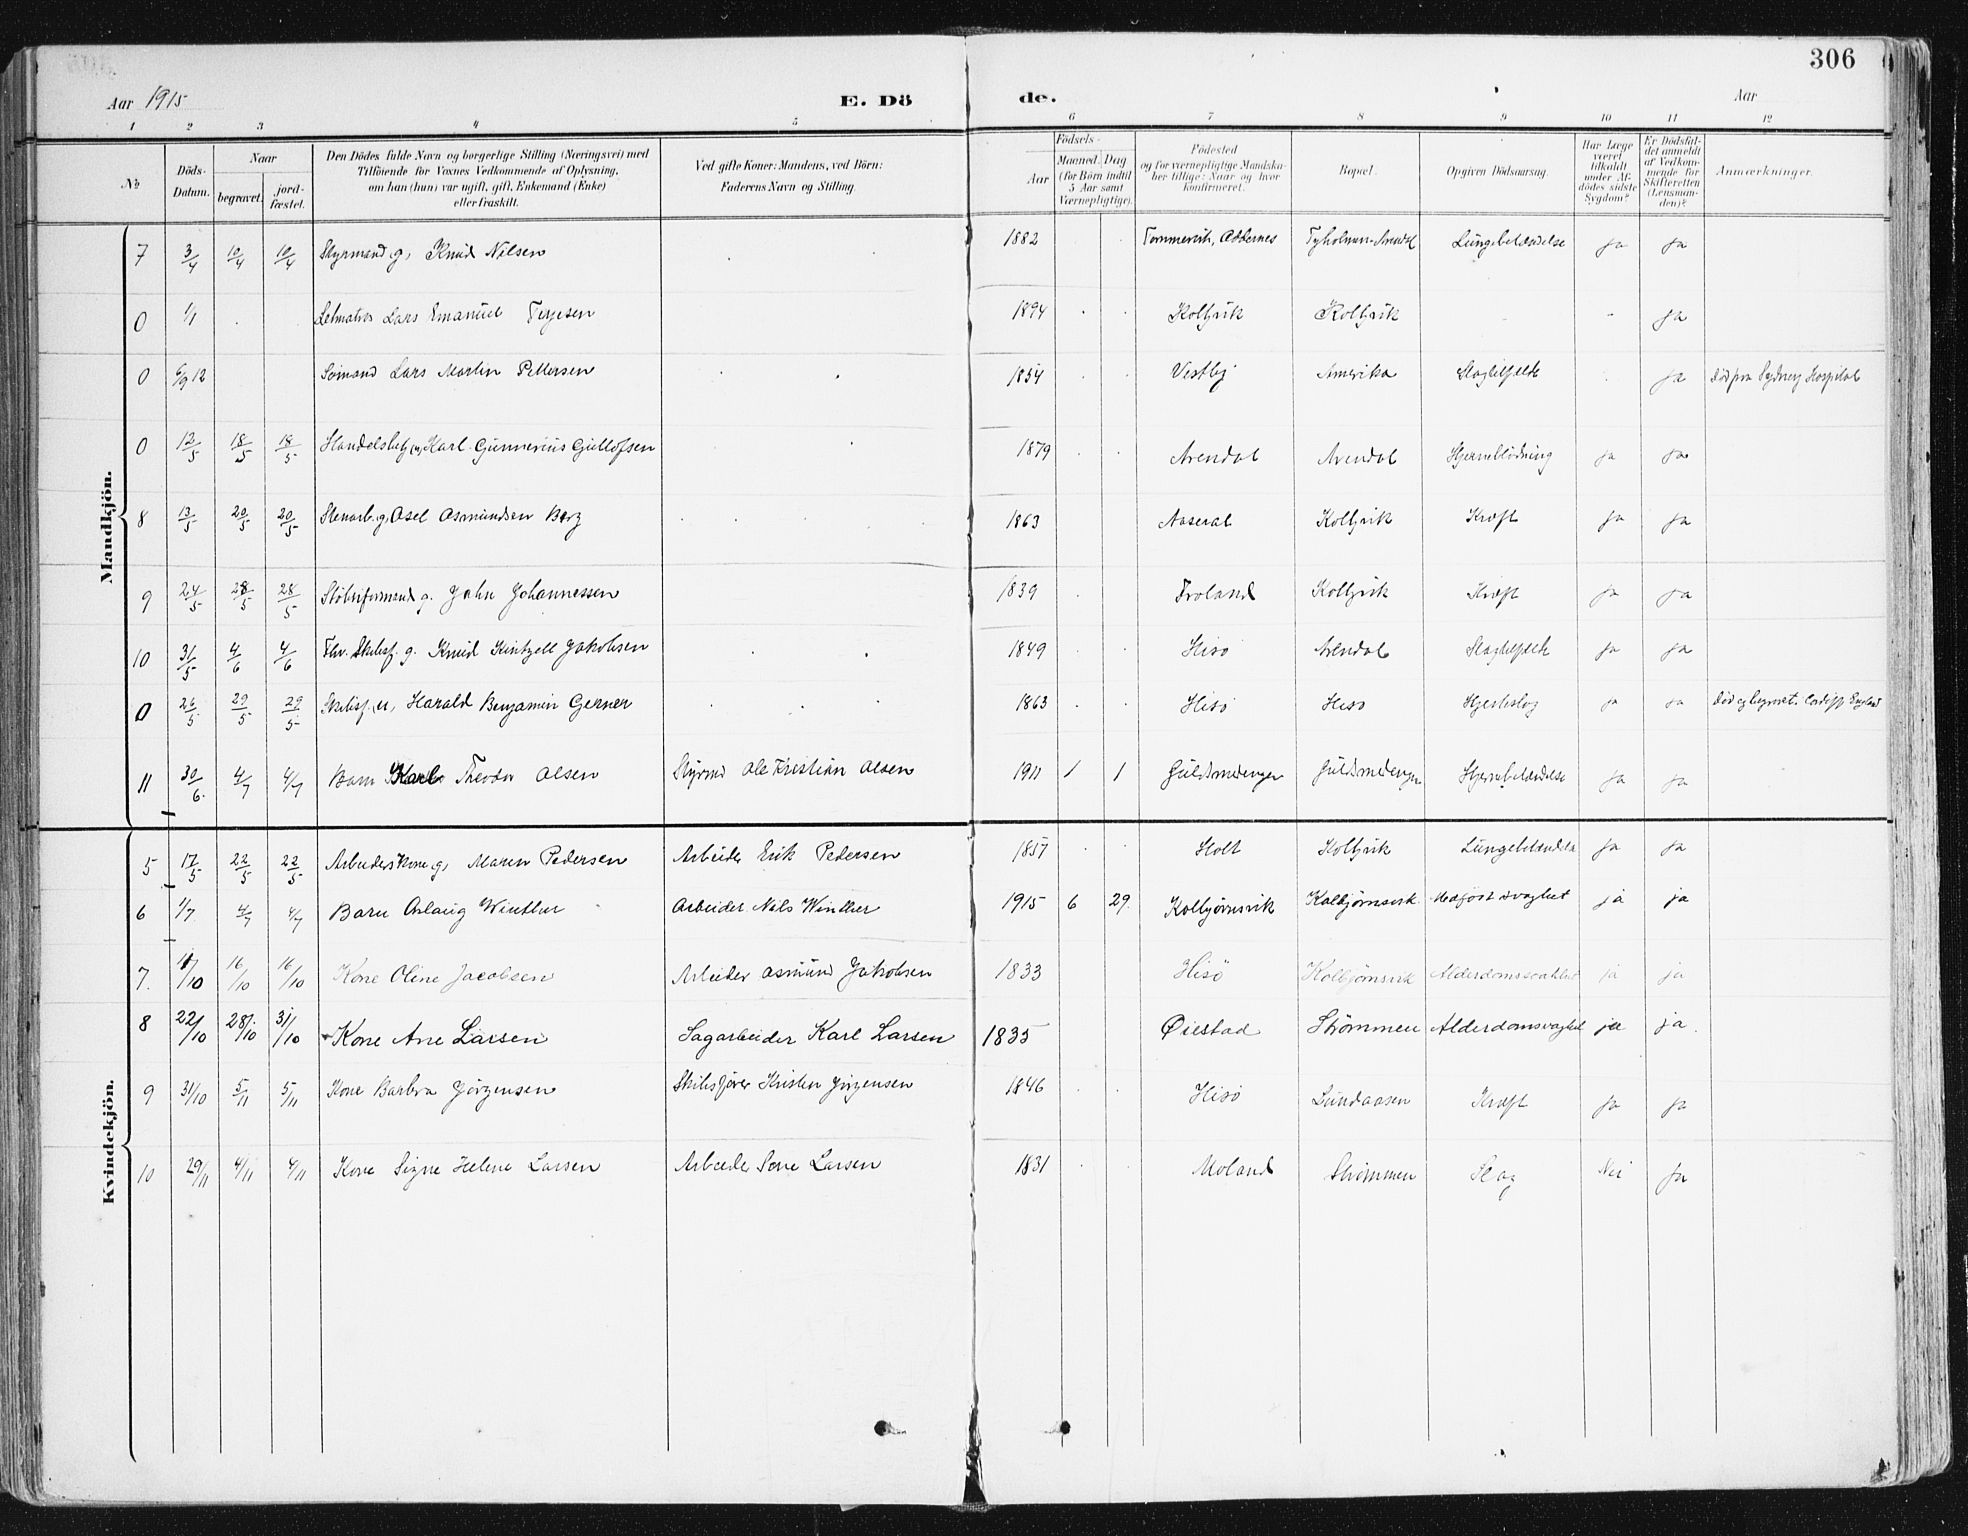 306
Aar 1915 E. Dö de. Aar
1 2 3 4 5 6 7 8 9 10 11 12
№ Döds-Datum. Naar begravet. jord-fæstet. Den Dödes fulde Navn og borgerlige Stilling (Næringsvei) med Tilföiende for Voxnes Vedkommende af Oplysning, om han (hun) var ugift, gift, Enkemand (Enke) eller fraskilt. Ved gifte Koner: Mandens, ved Börn: Faderens Navn og Stilling. Födsels- Aar Maaned. Dag (for Börn indtil 5 Aar samt Værnepligtige). Födested og for værnepligtige Mandskaber tillige: Naar og hvor konfirmeret. Bopæl. Opgiven Dödsaarsag. Har Læge været tilkaldt under Afdödes sidste Sygdom? Er Dödsfaldet anmeldt af Vedkommende for Skifteretten (Lensmanden)? Anmærkninger.
Mandkjön.
7 3/4 10/4 10/4 Styrmand g, Knud Nilsen 1882 Oddernes Tyholmen Arendal Lungebetændelse ja ja
0 1/1 Letmatros Lars Emanuel Terjesen 1894 Kolbjvik Kolbjvik ja
0 12 Sømand Lars Martin Pettersen 1854 Vestby Amerika Slagtilfælde ja død paa Sydney Hospital
0 12/5 18/5 18/5 Karl Gunnerius Gullofsen 1879 Arendal Arendal Hjerneblödning ja ja
8 13/5 20/5 20/5 Stenarb. g, Asel Asmundsen Berg 1863 Aaseral Kolbjvik Kræft ja ja
9 24/5 28/5 28/5 g. Jahn Johannessen 1839 Froland Kolbjvik Kræft ja ja
10 31/5 4/6 4/6 Fhv. Skibsf. g. Knud Kintzell Jakobsen 1849 Hisö Arendal Slagtilfælde ja ja
0 26/5 29/5 29/5 Skibsf. Harald Benjamin Gerner 1863 Hisö Hisö Hjerteslag ja ja død og begravet Cardiff England
11 30/6 4/7 4/7 Barn Karl Theodor Olsen Styrmd Ole Kristian Olsen 1911 1 1 Guldsmedengen Guldsmedengen Hjernebetændelse ja ja
Kvindekjön.
5 17/5 22/5 22/5 Arbeiderskone g, Maren Pedersen Arbeider Erik Pedersen 1857 Holt Kolbjvik Lungebetændelse ja ja
6 1/7 4/7 4/7 Barn Aslaug Winther Arbeider Nils Winther 1915 6 29. Kolbjørnsvik Kolbjørnsvik Medfödt svaghet ja ja
7. 11/10 16/10 16/10 Kone Oline Jacobsen Arbeider Asmund Jakobsen 1833 Hisö Kolbjørnsvik Alderdomssvakhet ja ja
8 22/10 28/10 31/10 Kone Ane Larsen Sagarbeider Karl Larsen 1835 Øiestad Strømmen Alderdomsvaghet ja ja.
9 31/10 5/11 5/11 Kone Barbra Jørgensen Skibsfører Kristen Jørgensen 1846 Hisö Lundaasen Kræft ja ja
10 29/11 4/11 4/11 Kone Signe Helene Larsen Arbeider Larsen 1831 Moland Strømmen Slag Nei Ja